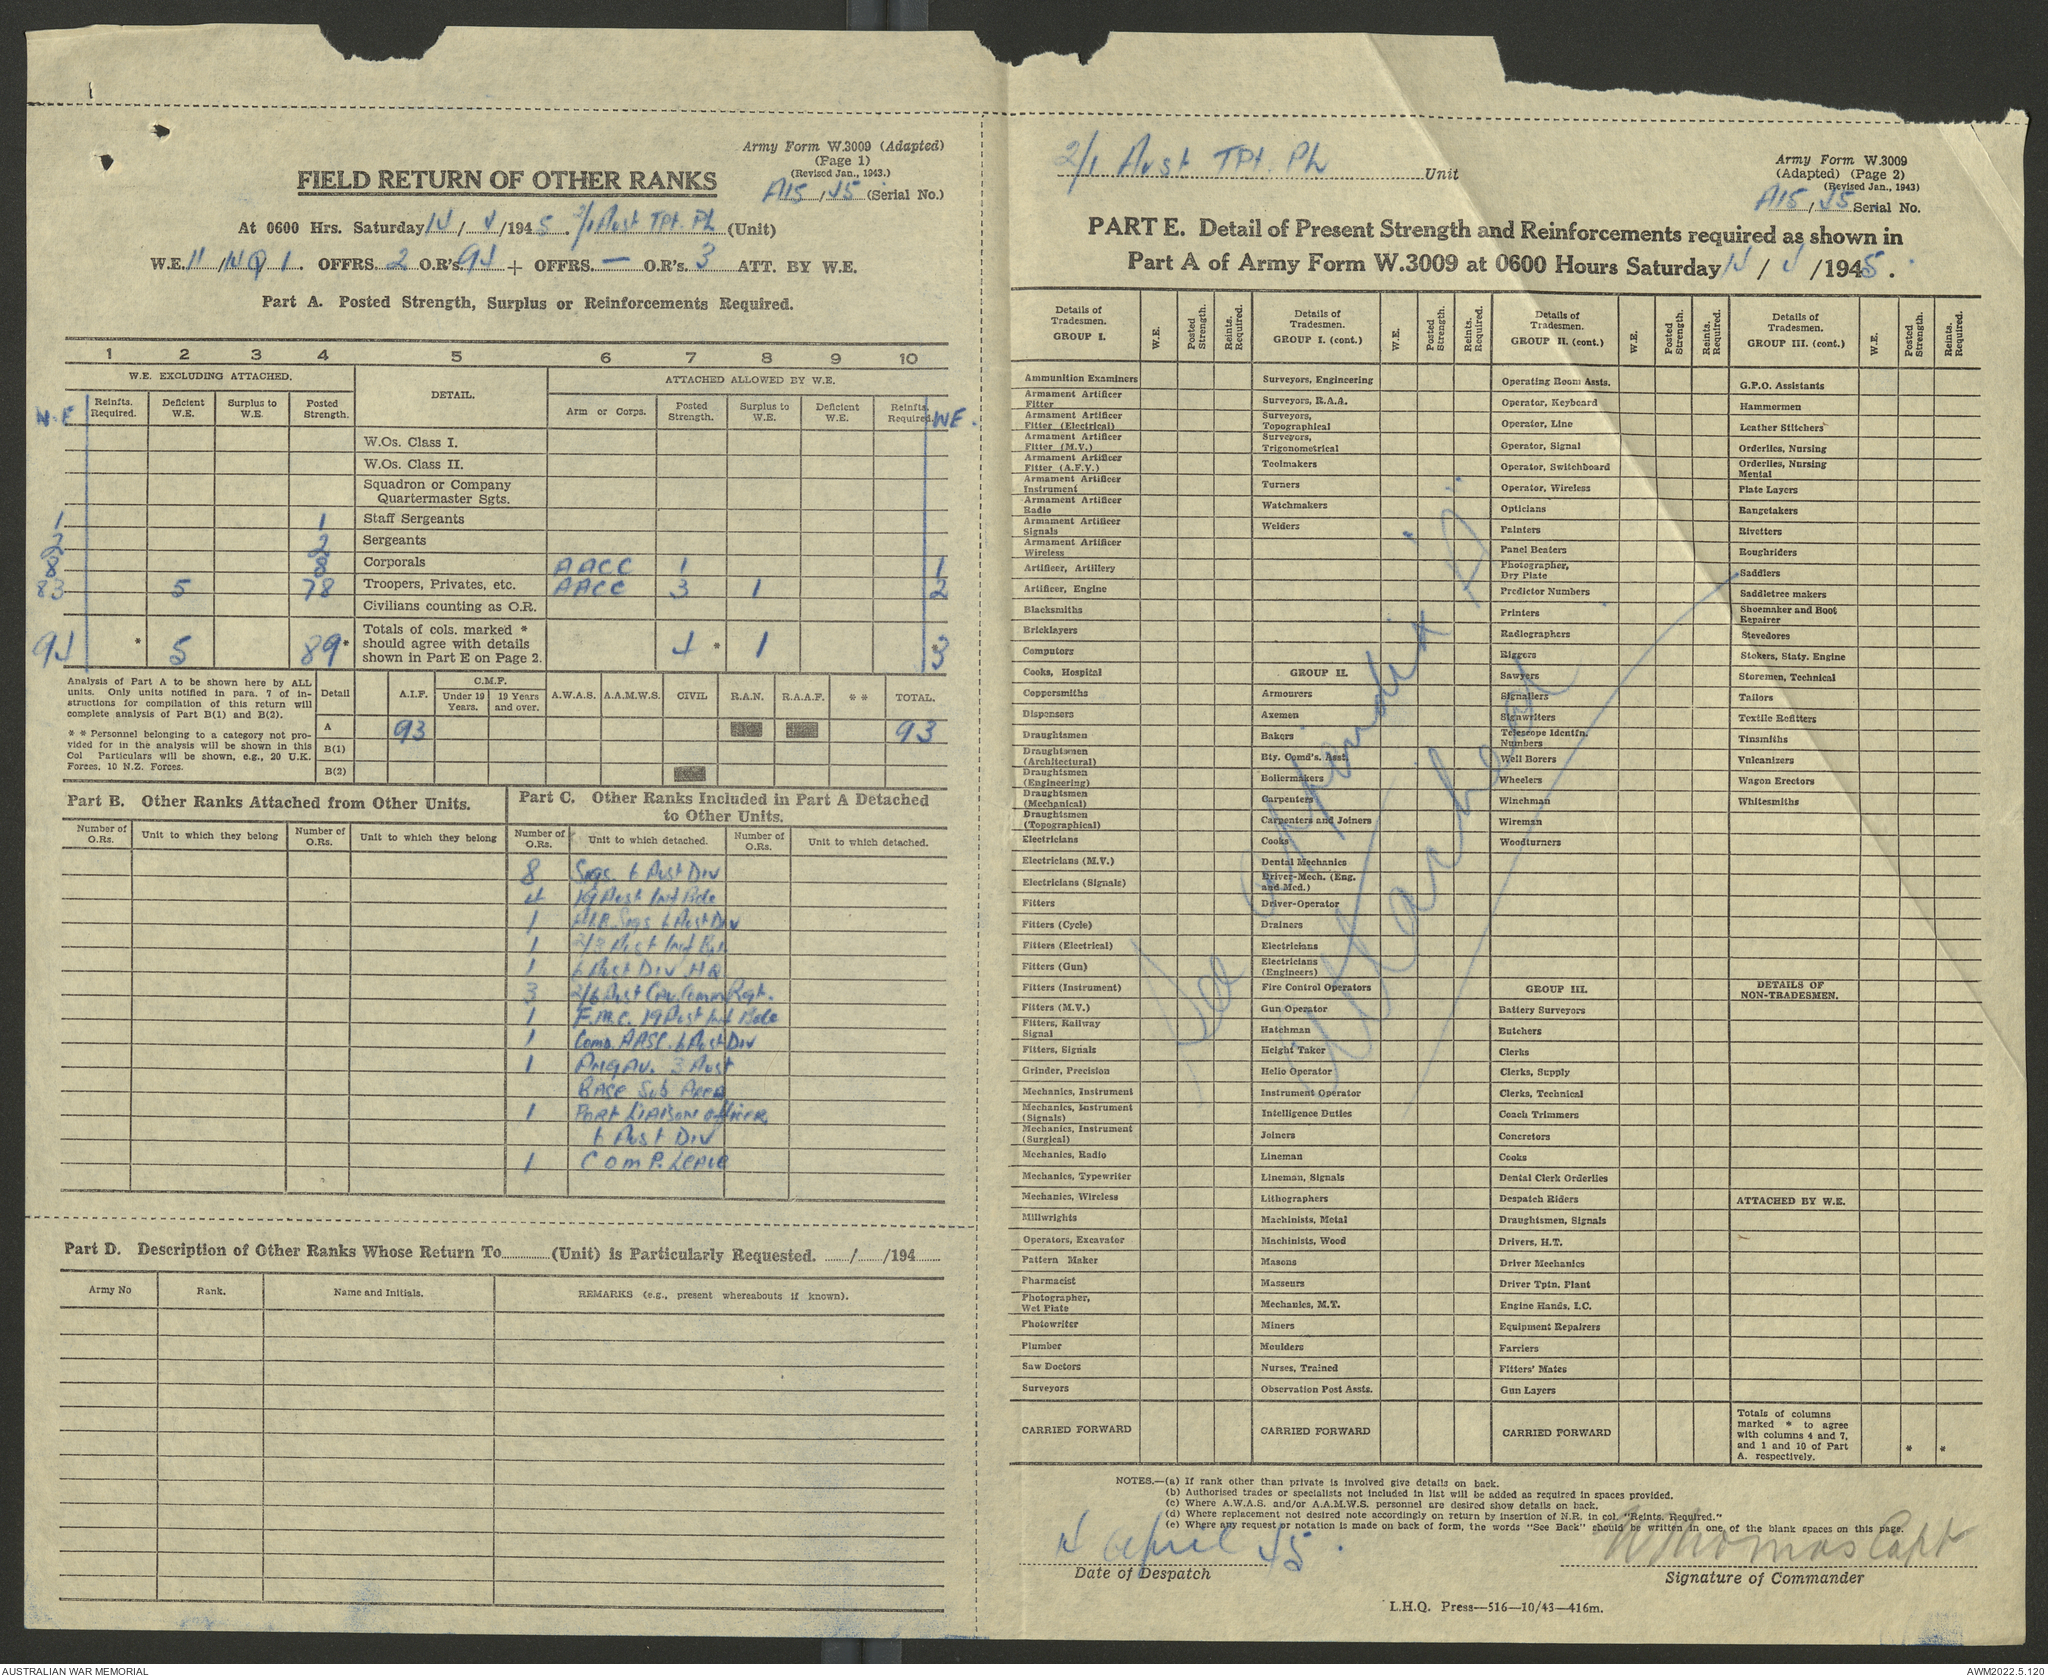 Army Form W.3009 (Adapted)
(Page 1)
(Revised Jan., 1943.)
A15/45 (Serial No.)
FIELD RETURN OF OTHER RANKS
At 0600 Hrs. Saturday 14/4/1945. 2/1 Aust Tpt. Pl (Unit)
W.E. 11/140/1. OFFRS. 2 O.R's. 94 + OFFRS. — O.R's. 3 ATT. BY W.E.
Part A. Posted Strength, Surplus or Reinforcements Required.
1 2 3 4 5 6 7 8 9 10
W.E. EXCLUDING ATTACHED. DETAIL. ATTACHED ALLOWED BY W.E.
W.E Reinfts. Required. Deficient W.E. Surplus to W.E. Posted Strength. Arm or Corps. Posted Strength. Surplus to W.E. Deficient W.E. Reinfts. Required. WE.
W.Os. Class I.
W.Os. Class II.
Squadron or Company
Quartermaster Sgts.
1 1 Staff Sergeants
2 2 Sergeants
8 8 Corporals AACC 1 1
83 5 78 Troopers, Privates, etc. AACC 3 1 2
Civilians counting as O.R.
94 * 5 89* Totals of cols. marked * should agree with details shown in Part E on Page 2. 4 * 1 3
Analysis of Part A to be shown here by ALL
units. Only units notified in para. 7 of in-
structions for compilation of this return will
complete analysis of Part B(1) and B(2).
* * Personnel belonging to a category not pro-
vided for in the analysis will be shown in this
Col Particulars will be shown, e.g., 20 U.K.
Forces, 10 N.Z. Forces.
Detail A.I.F. C.M.F. Under 19 Years. 19 Years and over. A.W.A.S. A.A.M.W.S. CIVIL R.A.N. R.A.A.F. * * TOTAL.
A 93 93
B(1)
B(2)
Part B. Other Ranks Attached from Other Units.
Number of O.Rs. Unit to which they belong Number of O.Rs. Unit to which they belong
Part C. Other Ranks Included in Part A Detached
to Other Units.
Number of O.Rs. Unit to which detached. Number of O.Rs. Unit to which detached.
8 Sigs. 6 Aust Div
4 19 Aust Inf Bde
1 Sigs 6 Aust Div
1 2/3 Aust Inf Bn
1 6 Aust Div HQ
3 2/6 Aust Cav. Comm Regt.
1 F.M.C. 19 Aust Inf Bde
1 Comd. AASC. 6 Aust Div
1 3 Aust
Base Sub Area
1 Port Liaison Officer
6 Aust Div
1 Comp. Leave
Part D. Description of Other Ranks Whose Return To (Unit) is Particularly Requested. / /194
Army No Rank. Name and Initials. REMARKS (e.g., present whereabouts if known).
2/1 Aust Tpt. Pl Unit
Army Form W.3009
(Adapted) (Page 2)
(Revised Jan., 1943)
A15/45 Serial No.
PART E. Detail of Present Strength and Reinforcements required as shown in
Part A of Army Form W.3009 at 0600 Hours Saturday 14/4/1945.
Details of Tradesmen. GROUP I. W.E. Posted Strength. Reints. Required.
Ammunition Examiners
Armament Artificer Fitter
Armament Artificer Fitter (Electrical)
Armament Artificer Fitter (M.V.)
Armament Artificer Fitter (A.F.V.)
Armament Artificer Instrument
Armament Artificer Radio
Armament Artificer Signals
Armament Artificer Wireless
Artificer, Artillery
Artificer, Engine
Blacksmiths
Bricklayers
Computors
Cooks, Hospital
Coppersmiths
Dispensers
Draughtsmen
Draughtsmen (Architectural)
Draughtsmen (Engineering)
Draughtsmen (Mechanical)
Draughtsmen (Topographical)
Electricians
Electricians (M.V.)
Electricians (Signals)
Fitters
Fitters (Cycle)
Fitters (Electrical)
Fitters (Gun)
Fitters (Instrument)
Fitters (M.V.)
Fitters, Railway Signal
Fitters, Signals
Grinder, Precision
Mechanics, Instrument
Mechanics, Instrument (Signals)
Mechanics, Instrument (Surgical)
Mechanics, Radio
Mechanics, Typewriter
Mechanics, Wireless
Millwrights
Operators, Excavator
Pattern Maker
Pharmacist
Photographer, Wet Plate
Photowriter
Plumber
Saw Doctors
Surveyors
CARRIED FORWARD
Details of Tradesmen. GROUP I. (cont.) W.E. Posted Strength. Reints. Required.
Surveyors, Engineering
Surveyors, R.A.A.
Surveyors, Topographical
Surveyors, Trigonometrical
Toolmakers
Turners
Watchmakers
Welders
GROUP II.
Armourers
Axemen
Bakers
Bty. Comd's. Asst.
Boilermakers
Carpenters
Carpenters and Joiners
Cooks
Dental Mechanics
Driver-Mech. (Eng. and Med.)
Driver-Operator
Drainers
Electricians
Electricians (Engineers)
Fire Control Operators
Gun Operator
Hatchman
Height Taker
Helio Operator
Instrument Operator
Intelligence Duties
Joiners
Lineman
Lineman, Signals
Lithographers
Machinists, Metal
Machinists, Wood
Masons
Masseurs
Mechanics, M.T.
Miners
Moulders
Nurses, Trained
Observation Post Assts.
CARRIED FORWARD
Details of Tradesmen. GROUP II. (cont.) W.E. Posted Strength. Reints. Required.
Operating Room Assts.
Operator, Keyboard
Operator, Line
Operator, Signal
Operator, Switchboard
Operator, Wireless
Opticians
Painters
Panel Beaters
Photographer, Dry Plate
Predictor Numbers
Printers
Radiographers
Riggers
Sawyers
Signallers
Signwriters
Telescope Identfn. Numbers
Well Borers
Wheelers
Winchman
Wireman
Woodturners
GROUP III.
Battery Surveyors
Butchers
Clerks
Clerks, Supply
Clerks, Technical
Coach Trimmers
Concretors
Cooks
Dental Clerk Orderlies
Despatch Riders
Draughtsmen, Signals
Drivers, H.T.
Driver Mechanics
Driver Tptn. Plant
Engine Hands, I.C.
Equipment Repairers
Farriers
Fitters' Mates
Gun Layers
CARRIED FORWARD
Details of Tradesmen. GROUP III. (cont.) W.E. Posted Strength. Reints. Required.
G.P.O. Assistants
Hammermen
Leather Stitchers
Orderlies, Nursing
Orderlies, Nursing Mental
Plate Layers
Rangetakers
Rivetters
Roughriders
Saddlers
Saddletree makers
Shoemaker and Boot Repairer
Stevedores
Stokers, Staty. Engine
Storemen, Technical
Tailors
Textile Refitters
Tinsmiths
Vulcanizers
Wagon Erectors
Whitesmiths
DETAILS OF NON-TRADESMEN.
ATTACHED BY W.E.
Totals of columns
marked * to agree
with columns 4 and 7,
and 1 and 10 of Part
A. respectively. * *
See Appendix "A"
attached.
NOTES.—(a) If rank other than private is involved give details on back.
(b) Authorised trades or specialists not included in list will be added as required in spaces provided.
(c) Where A.W.A.S. and/or A.A.M.W.S. personnel are desired show details on back.
(d) Where replacement not desired note accordingly on return by insertion of N.R. in col. "Reints. Required."
(e) Where any request or notation is made on back of form, the words "See Back" should be written in one of the blank spaces on this page.
14 April 45.
Date of Despatch
W Thomas Capt
Signature of Commander
L.H.Q. Press—516—10/43—416m.
AUSTRALIAN WAR MEMORIAL
AWM2022.5.120